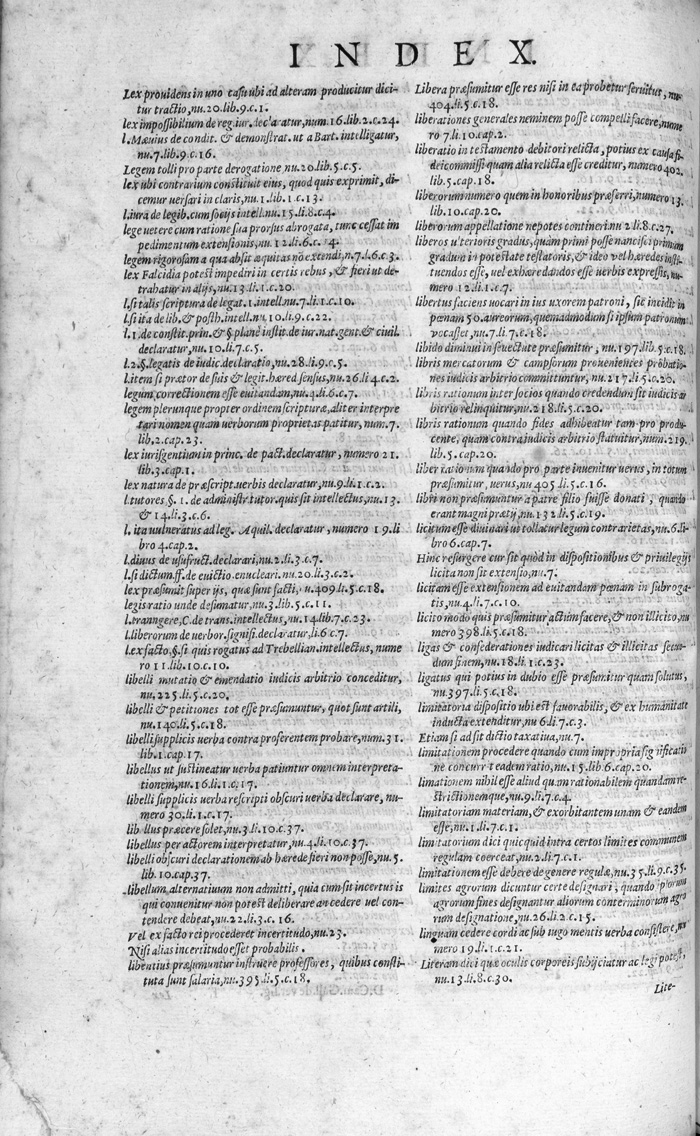 INDEX.
Lex prouidens in uno casu ubi ad alteram producitur dici-
tur tractio, nu.20.lib.9.c.1.
lex impossibilium de reg.iur.declaratur, num.16.lib.2.c.24.
l. Mæuius de condit. & demonstrat. ut a Bart. intelligatur,
nu.7.lib.9.c.16.
Legem tolli pro parte derogatione, nu.20.lib.5.c.5.
lex ubi contrarium constituit eius, quod quis exprimit, di-
cemur uersari in claris, nu.1.lib.1.c.13.
l.iura de legib.cum socijs intell.nu.15.li.8.c.4.
lege uetere cum ratione sua prorsus abrogata, tunc cessat im
pedimentum extensionis, nu.12.li.6.c. 4.
legem rigorosam a qua absit æquitas nõ extendi, n.7.l.6.c.3.
lex Falcidia potest impediri in certis rebus, & fieri ut de-
trahatur in alijs, nu.13.li.1.c.20.
l.si talis scriptura de legat.1.intell.nu.7.li.1.c.10.
l.si ita de lib.& posth.intell.nu.10.li.9.c.22.
l.1.de constit.prin.& §.planè instit.de iur.nat.gent.& ciuil.
declaratur, nu.10.li.7.c.5.
l.2.§.legatis de iudic.declaratio, nu.28.li.9.c.5.
l.item si prætor de suis & legit.hæred sensus, nu.26.li 4.c.2.
legum correctionem esse euitandam, nu.4.li.6.c.7.
legem plerunque propter ordinem scripturæ, aliter interpre
tari nomen quam uerborum proprietas patitur, num.7.
lib.2.cap.23.
lex iurisgentium in princ. de pact.declaratur, numero 21.
lib.3.cap.1.
lex natura de præscript.uerbis declaratur, nu.9.li.1.c.2.
l.tutores §.1.de administr.tutor.quis sit intellectus, nu.13.
& 14.li.3.c.6.
l. ita vulneratus ad leg. Aquil.declaratur, numero 19.li
bro 4.cap.2.
l.diuus de usufruct.declarari, nu.2.li.3.c.7.
l.si dictum.ff.de euictio.enucleari.nu.20.li.3.c.2.
lex præsumit super ijs, quæ sunt facti, u.409.li.5.c.18.
legis ratio unde desumatur, nu.3.lib.5.c.11.
l.tranngere, C.de trans.intellectus, nu.14.lib.7.c.23.
l.liberorum de uerbor.signifi.declaratur, li.6.c.7.
l.ex facto §.si quis rogatus ad Trebellian.intellectus, nume
ro 11.lib.10.c.10.
libelli mutatio & emendatio iudicis arbitrio conceditur,
nu.225.li.5.c.20.
libelli & petitiones tot esse præsumuntur, quot sunt artili,
nu.140.li.5.c.18.
libelli supplicis uerba contra proferentem probare, num.31.
lib.1.cap.17.
libellus ut sustineatur uerba patiuntur omnem interpreta-
tionem, nu.16.li.1.c.17.
libelli supplicis uerba rescripti obscuri uerba declarare, nu-
mero 30.li.1.c.17.
lib.llus præcere solet, nu.3.li.10.c.37.
libellus per actorem interpretatur, nu.4.li.10.c.37.
libelli obscuri declarationem ab hærede fieri non posse, nu.5.
lib.10.cap.37.
libellum, alternatiuum non admitti, quia cum sit incertus is
qui conuenitur non potest deliberare an cedere uel con-
tendere debeat, nu.22.li.3.c.16.
Vel ex facto rei procederet incertitudo, nu.23.
Nisi alias incertitudo esset probabilis.
libentius præsumuntur instruere professores, quibus consti-
tuta sunt salaria, nu.395.li.5.c.18.
Libera præsumitur esse res nisi in ea probetur seruitus, nu-
404.li.5.c.18.
liberationes generales neminem posse compelli facere, nume
ro 7.li.10.cap.2.
liberatio in testamento debitori relicta, potius ex causa fi-
deicommissi quam alia relicta esse creditur, numero 402.
lib.5.cap.18.
liberorum numero quem in honoribus præferri, numero 13.
lib.10.cap.20.
liberorum appellatione nepotes contineri.nu 2.li 8.c.27.
liberos ulterioris gradus, quàm primi posse nancisci primum
gradum in potestate testatoris, & ideo vel hæredes insti-
tuendos esse, vel exhæredandos esse uerbis expressis, nu-
mero 12.li.1.c.7.
libertus faciens uocari in ius uxorem patroni, sic incidit in
pœnam 50.aureorum, quemadmodum si ipsum patronum
vocasset, nu.7.li.7.c.18.
libido diminui in senectute præsumitur, nu.197.lib.5.c.18.
libris mercatorum & campsorum prouenientes probatio-
nes iudicis arbitrio committuntur, nu.217.li.5.c.20.
libris rationum inter socios quando credendum sit iudicis ar
bitrio relinquitur, nu.218.li.5.c.20.
libris rationum quando fides adhibeatur tam pro produ-
cente, quam contra iudicis arbitrio statuitur, num.219.
lib.5.cap.20.
liber rationum quando pro parte inuenitur uerus, in totum
præsumitur, uerus, nu 405.li.5.c.16.
libri non præsumuntur a patre filio fuisse donati, quando
erant magni prætij, nu.132.li.5.c.19.
licitum esse diuinari ut tollatur legum contrarietas, nu.6.li-
bro 6.cap.7.
Hinc resurgere cur sit quòd in dispositionibus & priuilegijs
licita non sit extensio, nu.7.
licitam esse extensionem ad euitandam pœnam in subroga-
tis, nu.4.li.7.c.10.
licito modo quis præsumitur, actum facere, & non illicito, nu
mero 398.li.5.c.18.
ligas & confederationes iudicari licitas & illicitas secun-
dum finem, nu.18.li.1.c.23.
ligatus qui potius in dubio esse præsumitur quam solutus,
nu.397.li.5.c.18.
limitatoria dispositio ubi est fauorabilis, & ex humanitate
inducta extenditur, nu 6.li.7.c.3.
Etiam si adsit dictio taxatiua, nu.7.
limitationem procedere quando cum impropria significatio
ne concurrit eadem ratio, nu.15.lib.6.cap.20.
limationem nihil esse aliud quam rationabilem quandam re-
strictionemque, nu.9.li.7.c.4.
limitatoriam materiam, & exorbitantem unam & eandem
esse, nu.1.li.7.c.1.
limitatorium dici quicquid intra certos limites communem
regulam coerceat, nu.2.li.7.c.1.
limitationem esse debere de genere regulæ, nu.35.li.9.c.35.
limites agrorum dicuntur certe designari, quando plurium
agrorum fines designantur aliorum conterminorum agro
rum designatione, nu.26.li.2.c.15.
linguam cedere cordi ac sub iugo mentis uerba consistere, nu
mero 19.li.1.c.21.
Literam dici quæ oculis corporeis subijciatur ac legi potest,
nu.13.li.8.c.30.
Lite-